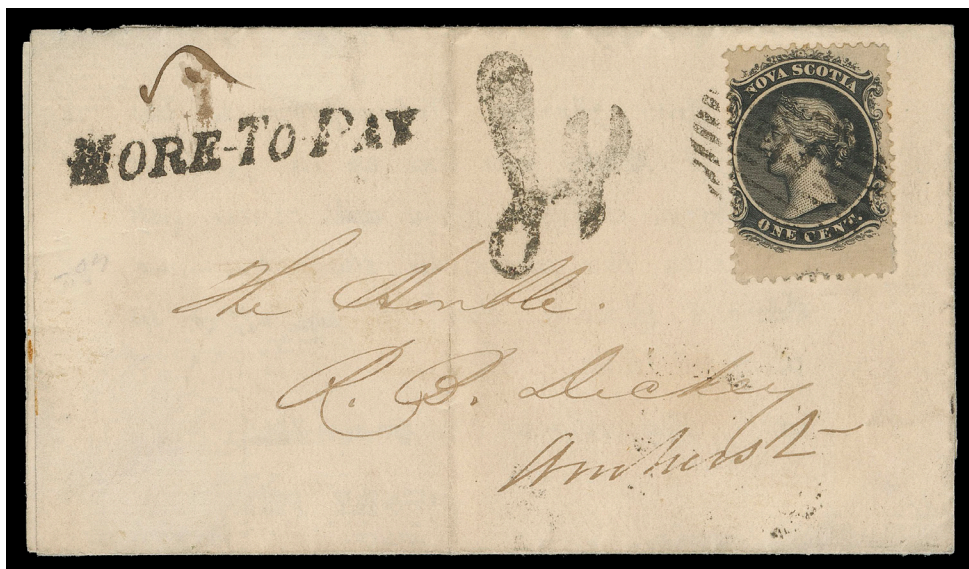 MORE-TO-PAY
NOVA SCOTIA
ONE CENT.
The Honble.
R. B. Dickey
Amherst